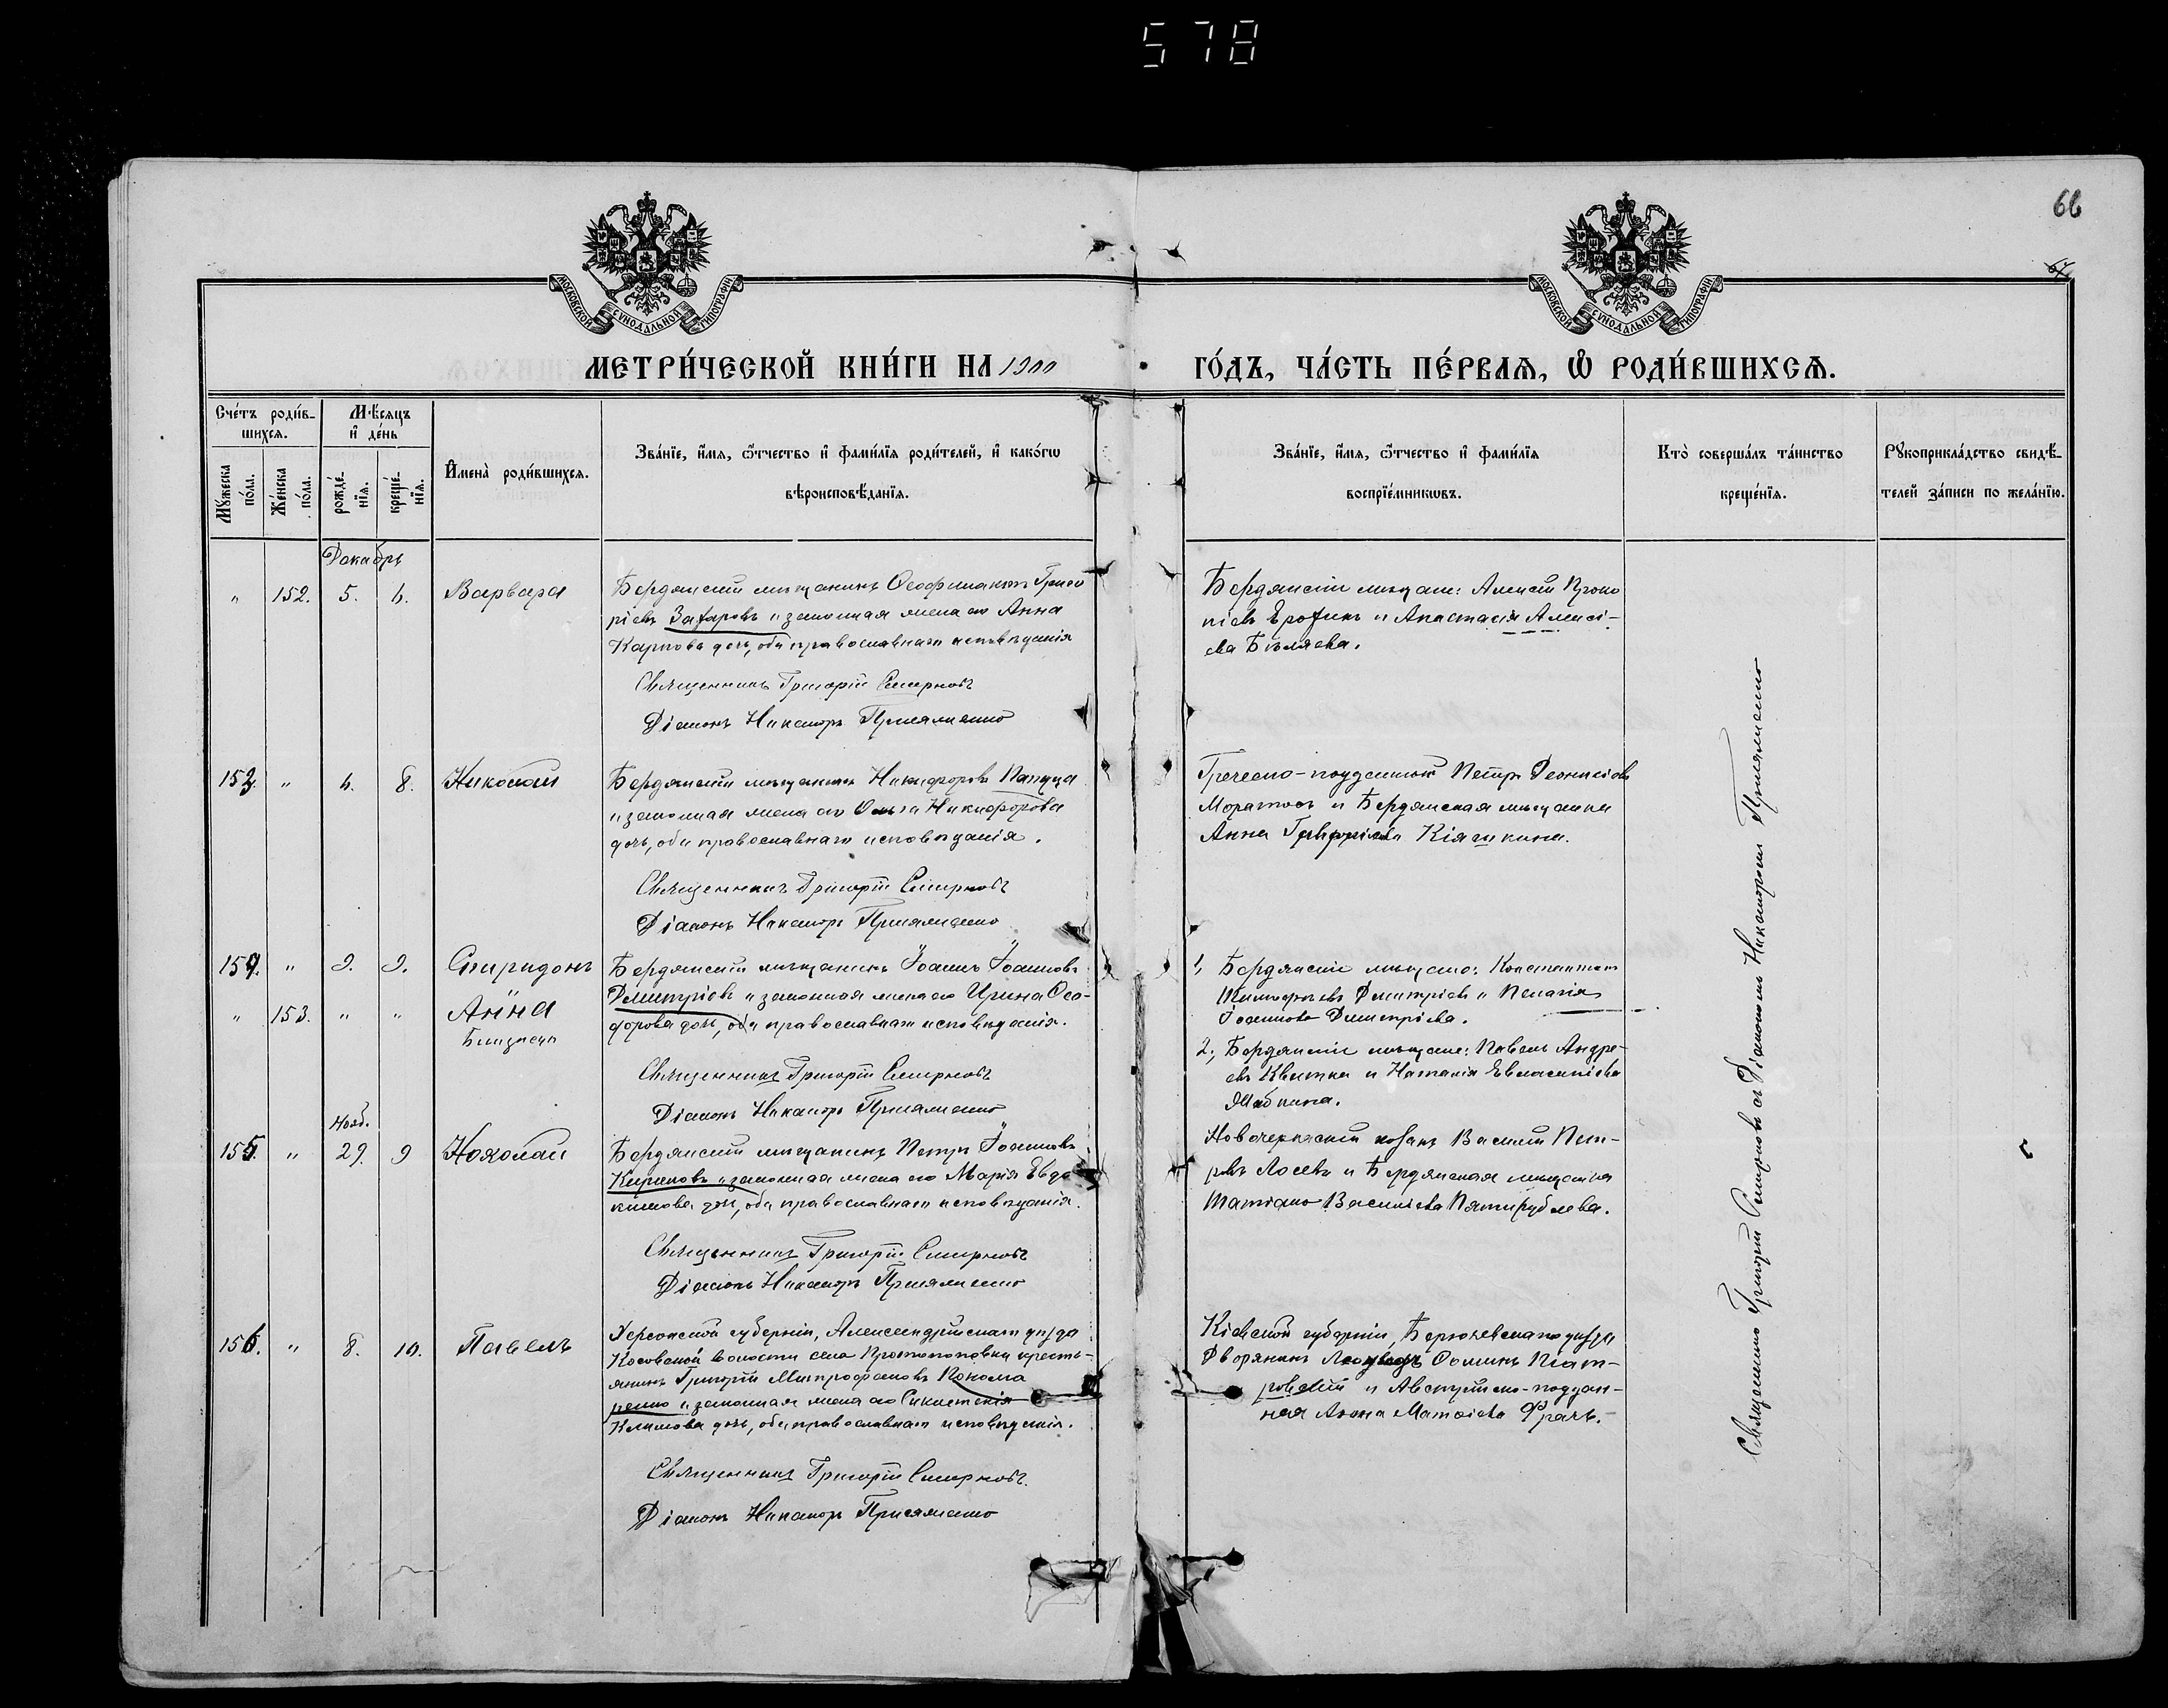 578
66
МОСКОВСКОЙ СѴНОДАЛЬНОЙ ТИПОГРАФІИ
МОСКОВСКОЙ СѴНОДАЛЬНОЙ ТИПОГРАФІИ
МЕТРИ́ЧЕСКОЙ КНИ́ГИ НА 1900 ГО́ДЪ, ЧА́СТЬ ПЕ́РВАѦ, Ѿ РОДИ́ВШИХСѦ.
Сче́тъ роди́в-
шихсѧ.
Мꙋжеска по́ла.
Же́нска по́ла.
Мѣ́сѧцъ
и҆ де́нь
рожде́-
нїѧ.
креще́-
нїѧ.
И҆мена̀ роди́вшихсѧ.
Зва́нїе, и҆́мѧ, ѻ҆́тчество и҆ фами́лїѧ роди́телей, и҆ како́гѡ
вѣроисповѣ́данїѧ.
Зва́нїе, и҆́мѧ, ѻ҆́тчество и҆ фами́лїѧ
воспрїе́мникѡвъ.
Кто̀ соверша́лъ та́инство
креще́нїѧ.
Рꙋкоприкла́дство свидѣ́-
телей за́писи по жела́нїю.
Декабрь
" 152. 5. 6. Варвара
Бердянскій мѣщанинъ Ѳеофилактъ Григо
ріевъ Захаровъ и законная жена его Анна
Карпова дочь, оба православнаго исповѣданія
Священникъ Григорій Смирновъ
Діаконъ Никаноръ Присяженко
Бердянскіе мѣщане: Алексѣй Проко
піевъ Ерохинъ и Анастасія Алексі-
ева Бѣляева.
153. " 6. 8. Николай
Бердянскій мѣщанинъ Никифоровъ Папуца
и законная жена его Ольга Никифорова
дочь, оба православнаго исповѣданія.
Священникъ Григорій Смирновъ
Діаконъ Никаноръ Присяженко
Греческо-подданный Петръ Діонисіевъ
Моратосъ и Бердянская мѣщанка
Анна Гавріилова Кіяшкина.
154. " 9. 9. Спиридонъ
" 153. " " Анна
Близнецы
Бердянскій мѣщанинъ Іоаннъ Іоанновъ
Димитріевъ и законная жена его Ирина Ѳео-
дорова дочь, оба православнаго исповѣданія.
Священникъ Григорій Смирновъ
Діаконъ Никаноръ Присяженко
1, Бердянскіе мѣщане: Константинъ
Димитріевъ и Пелагія
Іоаннова Димитріева.
2, Бердянскіе мѣщане: Павелъ Андре-
евъ Квитка и Наталія Евлампіева
Шабкина.
Нояб.
155. " 29. 9 Николай
Бердянскій мѣщанинъ Петръ Іоанновъ
Кириковъ и законная жена его Марія Евдо
кимова дочь, оба православнаго исповѣданія.
Священникъ Григорій Смирновъ
Діаконъ Никаноръ Присяженко
Новочеркаскій козакъ Василій Пет-
ровъ Лосевъ и Бердянская мѣщанка
Татіана Васильева Пятирублева.
156. " 8. 10. Павелъ
Херсонской губерніи, Александрійскаго уѣзда
Косовской волости села Протопоповки кресть-
янинъ Григорій Митрофановъ Конома
ренко и законная жена его Синклитикія
Климова дочь, оба православнаго исповѣданія.
Священникъ Григорій Смирновъ.
Діаконъ Никаноръ Присяженко
Кіевской губерніи, уѣзда
Дворянинъ Ѳоминъ Піот-
ровскій и Австрійско-поддан-
ная Анна Матвіева Франъ.
Священникъ Григорій Смирновъ съ Діакономъ Никаноромъ Присяженко